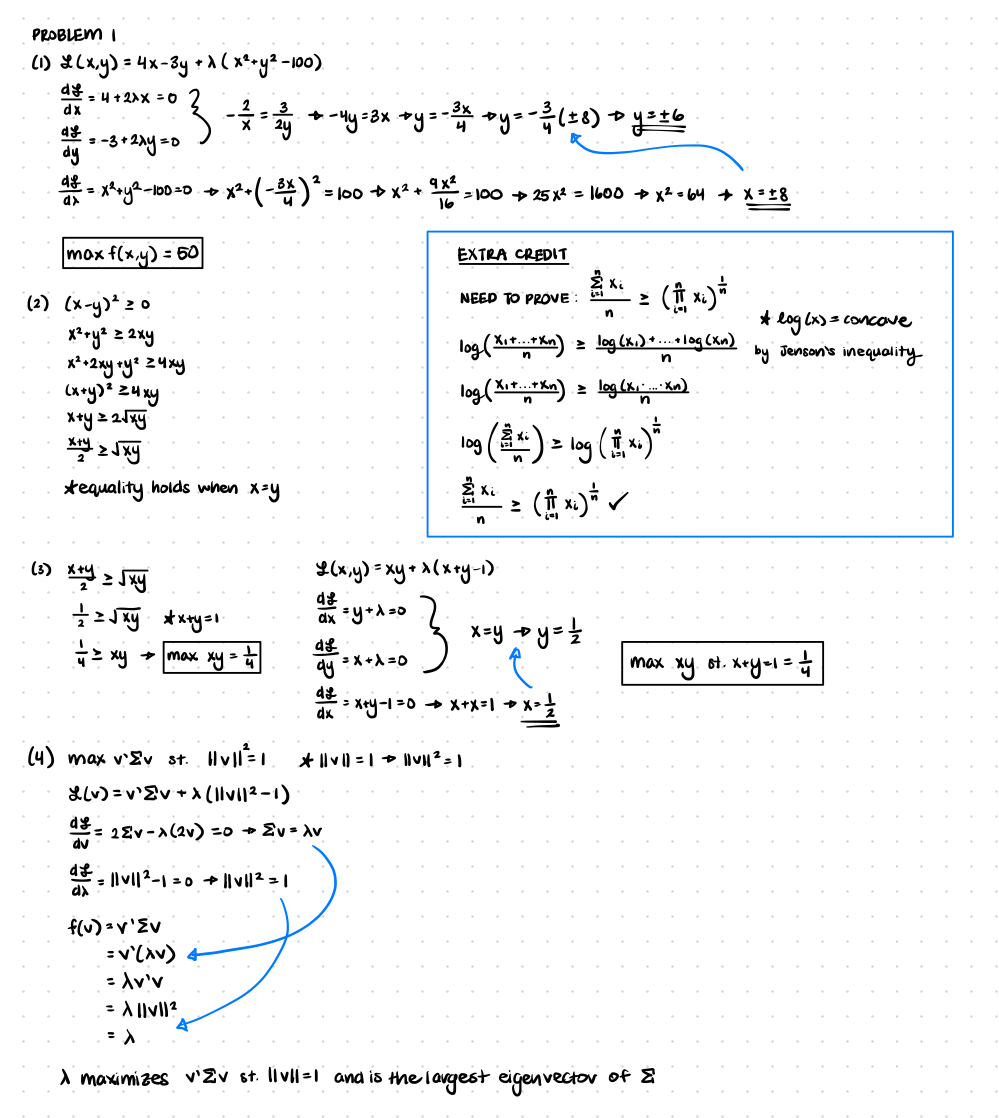 PROBLEM 1
(1) ℒ(x,y) = 4x-3y + λ( x²+y²-100)
dℒ/dx = 4+2λx = 0
dℒ/dy = -3+2λy=0
-2/x = 3/2y → -4y=3x → y= -3x/4 → y= -3/4(±8) → y=±6
dℒ/dλ = x²+y²-100=0 → x²+(-3x/4)² =100 → x² + 9x²/16 =100 → 25x² = 1600 → x²=64 → x=±8
max f(x,y) = 50
(2) (x-y)² ≥ 0
x²+y² ≥ 2xy
x²+2xy+y² ≥4xy
(x+y)² ≥4xy
x+y ≥ 2√xy
x+y/2 ≥ √xy
*equality holds when x=y
EXTRA CREDIT
NEED TO PROVE: ∑ⁿᵢ₌₁ xᵢ/n ≥ (∏ⁿᵢ₌₁ xᵢ)^1/n
* log(x) = concave
by Jenson's inequality
log(x₁+...+xn/n) ≥ log(x₁)+...+log(xn)/n
log(x₁+...+xn/n) ≥ log(x₁·...·xn)/n
log(∑ⁿᵢ₌₁ xᵢ/n) ≥ log(∏ⁿᵢ₌₁ xᵢ)^1/n
∑ⁿᵢ₌₁ xᵢ/n ≥ (∏ⁿᵢ₌₁ xᵢ)^1/n ✓
(3) x+y/2 ≥ √xy
1/2 ≥ √xy *x+y=1
1/4 ≥ xy → max xy = 1/4
ℒ(x,y) = xy + λ(x+y-1)
dℒ/dx = y+λ=0
dℒ/dy = x+λ=0
x=y → y= 1/2
dℒ/dx = x+y-1=0 → x+x=1 → x= 1/2
max xy st. x+y=1 = 1/4
(4) max v'Σv st. ||v||²=1 * ||v||=1 → ||v||²=1
ℒ(v) = v'Σv + λ(||v||²-1)
dℒ/dv = 2Σv-λ(2v) =0 → Σv=λv
dℒ/dλ = ||v||²-1=0 → ||v||²=1
f(v) = v'Σv
= v'(λv)
= λv'v
= λ||v||²
= λ
λ maximizes v'Σv st. ||v||=1 and is the largest eigenvector of Σ